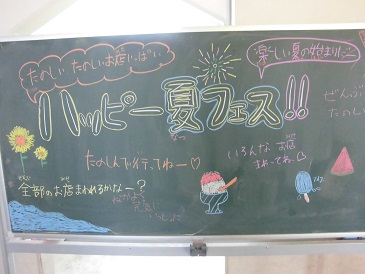 たのしい たのしいお店いっぱい
楽しい夏の始まり
ハッピー夏フェス!!
なつ
ぜんぶ
たのしい
たのしんで行ってねー♡
いろんな お店
まわってね♡
全部のお店まわれるかなー?